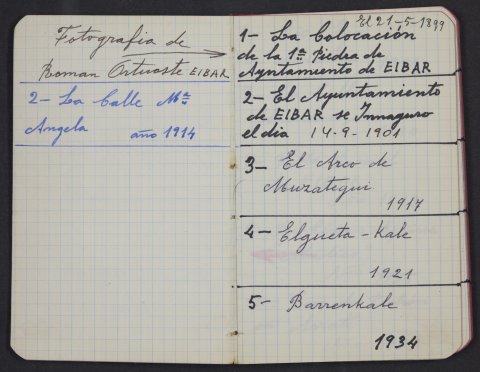 Fotografia de
Roman Ortuoste EIBAR
2- La Calle Mª
Angela año 1914
El 21-5-1899
1- La Colocación
de la 1ª Piedra de
Ayntamiento de EIBAR
2- El Ayuntamiento
de EIBAR se Innaguro
el dia 14-9-1901
3- El Arco de
Muzategui
1917
4- Elgueta-Kale
1921
5- Barrenkale
1934